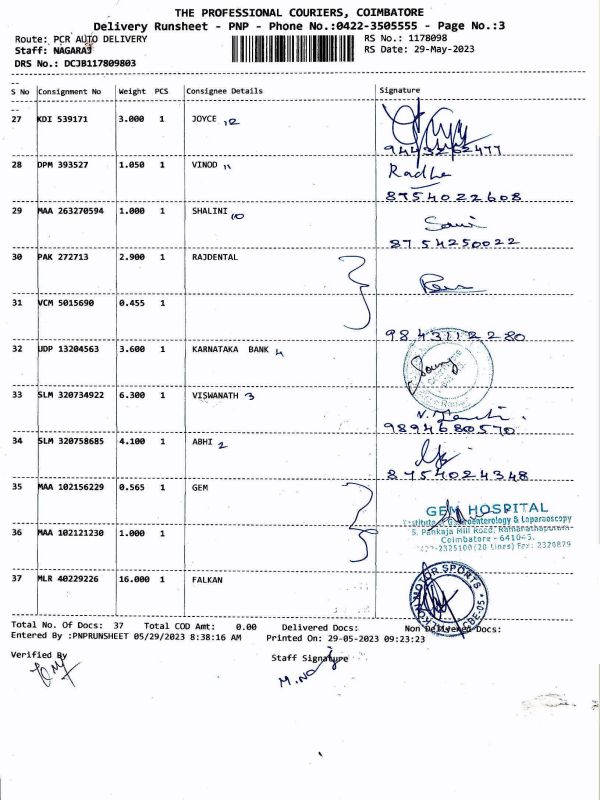 THE PROFESSIONAL COURIERS, COIMBATORE
Delivery Runsheet - PNP - Phone No.:0422-3505555 - Page No.:3
Route: PCR AUTO DELIVERY
RS No.: 1178098
Staff: NAGARAJ
RS Date: 29-May-2023
DRS No.: DCJB117809803
S No Consignment No Weight PCS Consignee Details Signature
27 KDI 539171 3.000 1 JOYCE 12
28 DPM 393527 1.050 1 VINOD 11 Radha
8754022608
29 MAA 263270594 1.000 1 SHALINI 10
8754250022
30 PAK 272713 2.900 1 RAJDENTAL
31 VCM 5015690 0.455 1
9843112280
32 UDP 13204563 3.600 1 KARNATAKA BANK 4
33 SLM 320734922 6.300 1 VISWANATH 3
9894680570
34 SLM 320758685 4.100 1 ABHI 2
8754024348
35 MAA 102156229 0.565 1 GEM
GEM HOSPITAL
Institute of Gastroenterology & Laparoscopy
5, Pankaja Mill Road, Ramanathapuram
Coimbatore - 641045.
2325100 (20 Lines) Fax: 2320879
36 MAA 102121230 1.000 1
37 MLR 40229226 16.000 1 FALKAN
MOTOR SPORTS
CBE-05
Total No. Of Docs: 37 Total COD Amt: 0.00 Delivered Docs: Non Delivered Docs:
Entered By :PNPRUNSHEET 05/29/2023 8:38:16 AM Printed On: 29-05-2023 09:23:23
Verified By
Staff Signature